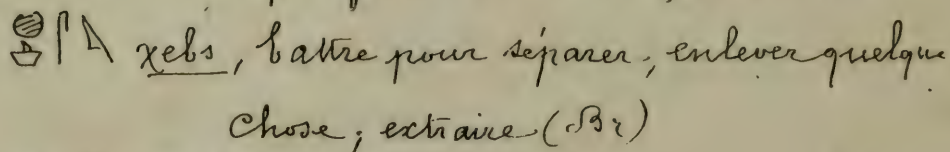 χebs, battre pour séparer; enlever quelque
chose; extraire (Br)